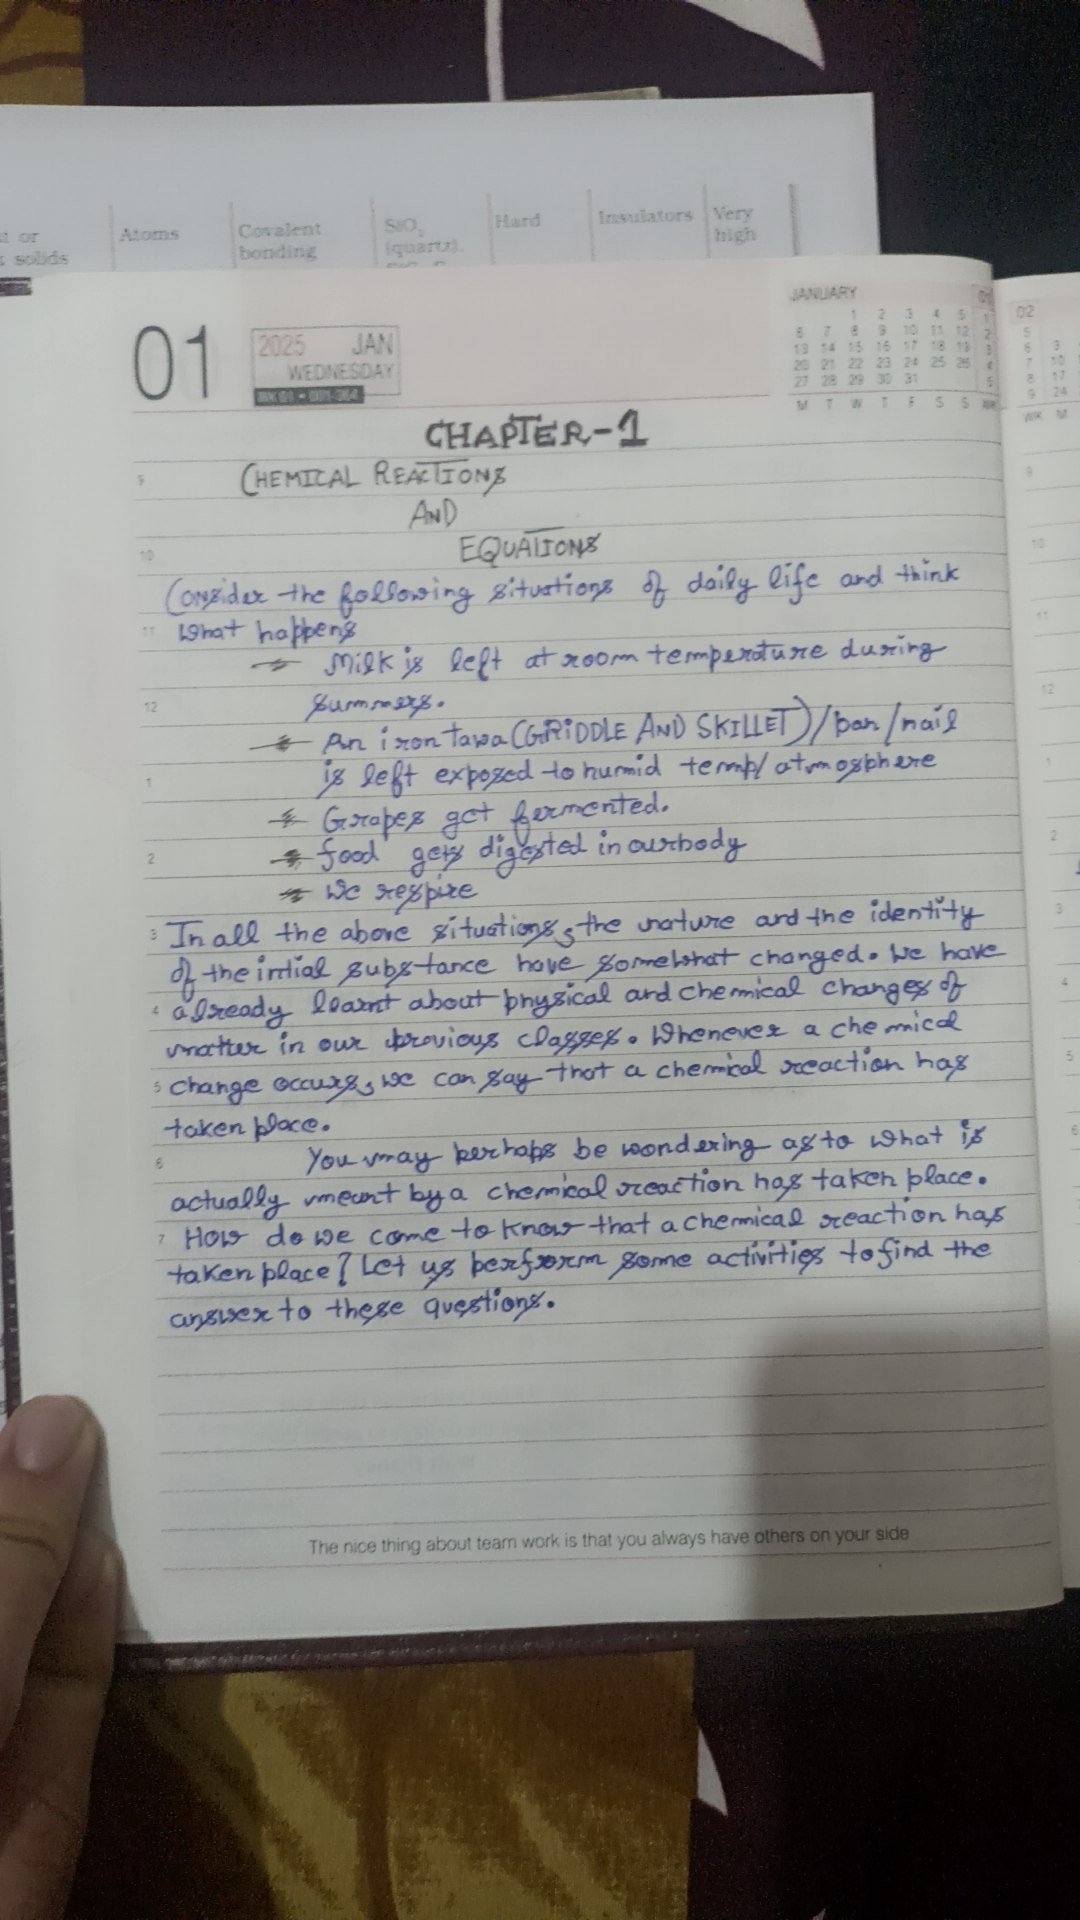 Atoms
Covalent
bonding
SiO2
(quartz),
Hard
Insulators
Very
high
solids
01
2025 JAN
WEDNESDAY
JANUARY
1 2 3 4 5
6 7 8 9 10 11 12
13 14 15 16 17 18 19
20 21 22 23 24 25 26
27 28 29 30 31
M T W T F S S WK
02
CHAPTER-1
CHEMICAL REACTIONS
AND
EQUATIONS
Consider the following situations of daily life and think
what happens
Milk is left at room temperature during
summers.
An iron tawa (GRIDDLE AND SKILLET)/pan/nail
is left exposed to humid temp/atmosphere
Grapes get fermented.
food gets digested in our body
We respire
In all the above situations, the nature and the identity
of the initial substance have somewhat changed. We have
already learnt about physical and chemical changes of
matter in our previous classes. Whenever a chemical
change occurs, we can say that a chemical reaction has
taken place.
You may perhaps be wondering as to what is
actually meant by a chemical reaction has taken place.
How do we come to know that a chemical reaction has
taken place? Let us perform some activities to find the
answer to these questions.
The nice thing about team work is that you always have others on your side